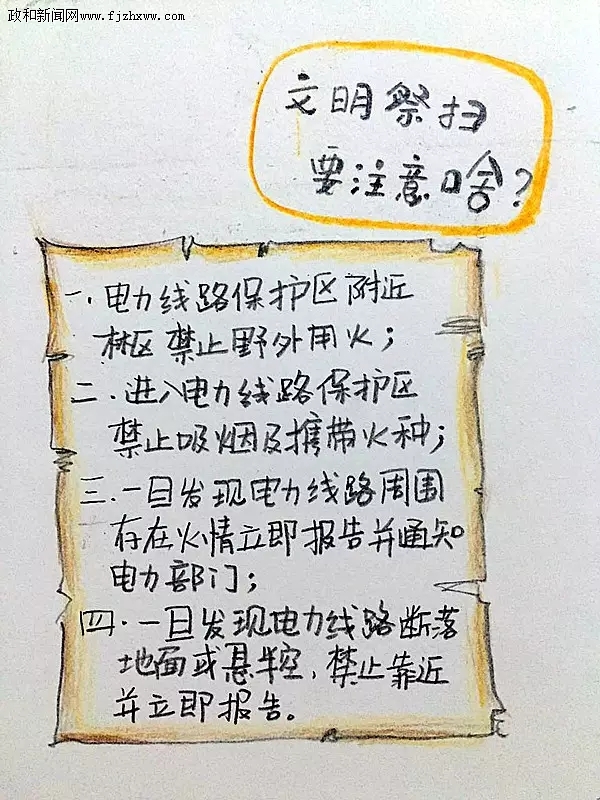 政和新闻网www.fjzhxww.com
文明祭扫
要注意啥?
一.电力线路保护区附近
林区禁止野外用火;
二.进入电力线路保护区
禁止吸烟及携带火种;
三.一旦发现电力线路周围
存在火情立即报告并通知
电力部门;
四.一旦发现电力线路断落
地面或悬半空,禁止靠近
并立即报告。